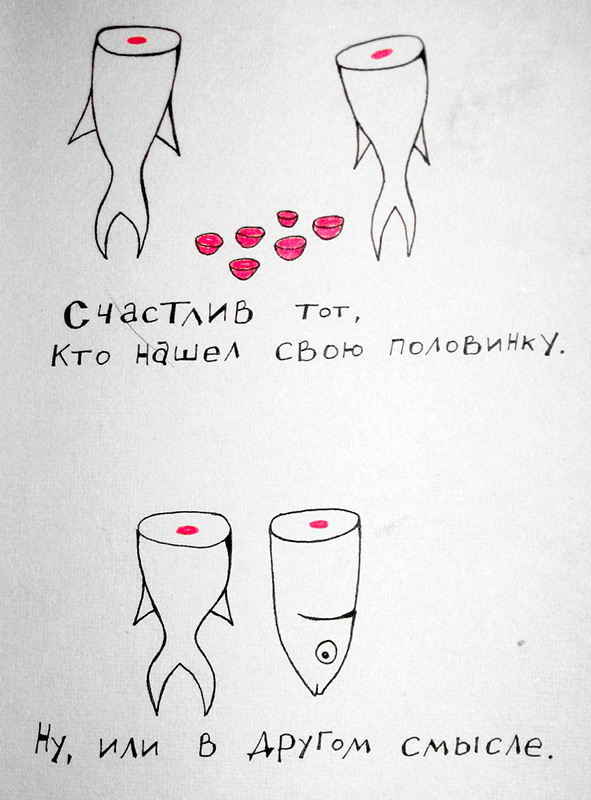 Счастлив тот,
кто нашел свою половинку.
Ну, или в другом смысле.